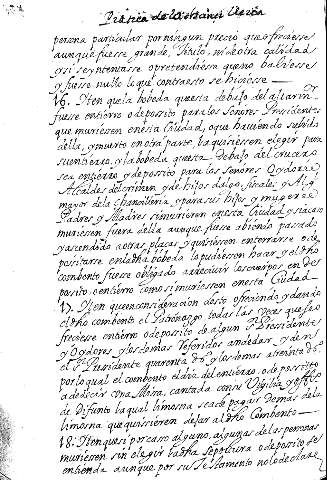 persona particular por ningun precio que ofreciesse
aunque fuesse grande, Titulo, ni de otra calidad
y si se yntentasse o pretendiesse que no baliesse
y fuese nullo lo que contra esto se hiciesse
16. Iten que la bobeda questa debajo del altar mr
fuese entierro o deposito para los Señores Presidentes
que muriessen en esta Ciudad, o que haviendo salido
della, y muerto en otra parte, la quisiessen elegir para
su entierro, y la bobeda questa Debajo del crucero
sea entierro y deposito para los Señores Oydores,
Alcaldes del crimen y de hijos dalgo, fiscales y Alg
mayor de la Chancilleria, y para sus hijos y mugeres
Padres y Madres si murieren en esta Ciudad y si acaso
muriessen fuera della aunque fuese abiendo passado
y ascendido a otras plaças, y quisiessen enterrarse o de
positarse en la dha bobeda lo pudiessen hacer, y el dho
combento fuese obligado a recivir los cuerpos en de
posito o entierro como si muriessen en esta Ciudad
17. Iten que en consideracion desto ofreciendo y dando
el dho combento el Patronazgo todas las veces que sso
freciesse entierro o deposito de algun Sr Presidente
y Oydores y los demas referidos an de dar, y den
el Sr Presidente quarenta ds y los demas a treinta ds
por lo qual el combento el dia del entierro, o deposito
a de decir una Missa, cantada con su Vigilia y offio
de difunto la qual limosna se a de pagar demas de la
limosna que quisieren dejar al dho Combento
18. Iten que si por caso alguno, o algunas de las personas
muriessen sin elegir la dha sepoltura o deposito se
entienda aunque por su Testamento no lo declare